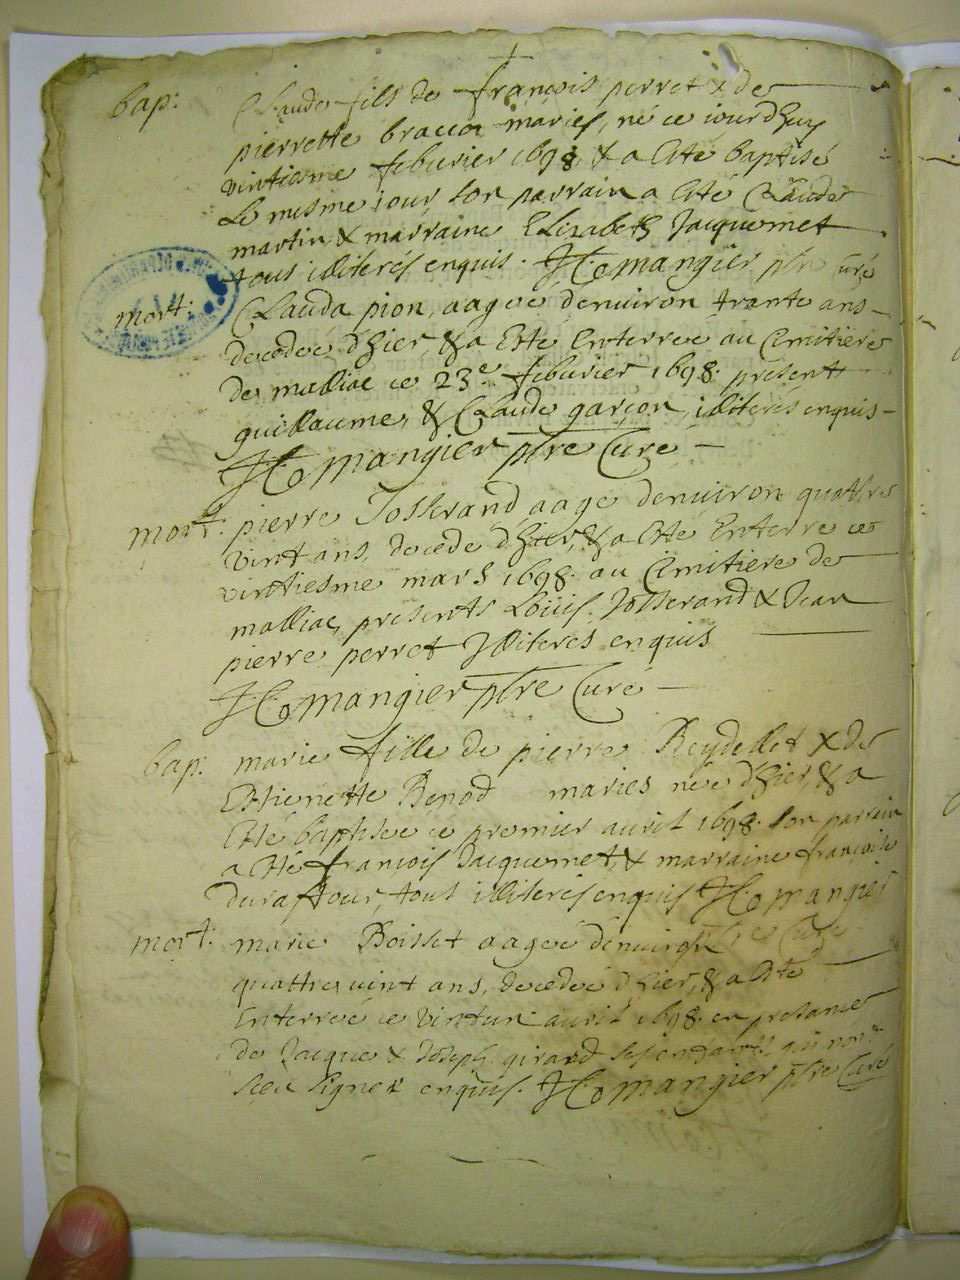 bap:
Claude fils de françois perret & de
pierrette maries, né ce iourdhuy
vintiesme feburier 1698, & a esté baptisé
le mesme iour son parrain a esté Claude
martin & marraine Elizabeth Jacquemet
tous illiterés enquis. mangier ptre curé
mort:
Clauda pion, aagee denuiron trante ans
decedeé dhier, & a esté enterree au Cimitiere
de malliac ce 23e feburier 1698. present
guillaume, & Claude garçon, illiteres enquis
mangier ptre Curé
mort:
pierre Josserand aagé denuiron quattre
vint ans, decede dhier, & a esté enterre ce
vintiesme mars 1698. au Cimitiere de
malliac, presents Loüis Josserand & Jean
pierre perret Illiteres enquis
mangier ptre Curé
bap:
marie fille de pierre Reydellet & de
Estienette Benod maries née dhier, & a
esté baptisee ce premier auril 1698. son parrain
a esté françois Jacquemet, & marraine françoise
durafour, tous illiterés enquis mangier
ptre Curé
mort:
marie Boisset aageé denuiron
quattre vint ans, decedeé dhier, & a esté
Enterreé ce vintun auril 1698. en presance
de Jacque & Joseph girard ses qui nont
sceu signer enquis. mangier ptre Curé